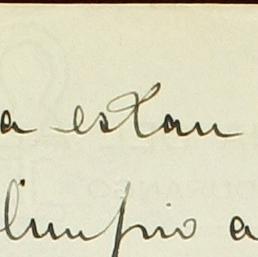 a estan
limpio a